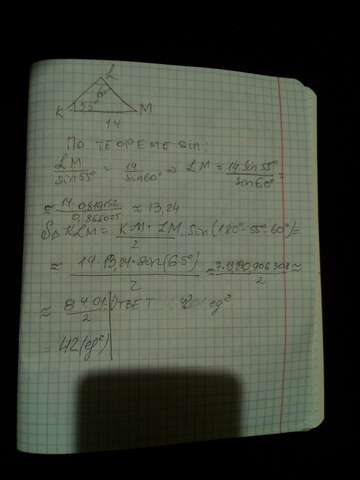 L
60°
K 55° M
14
По теореме sin:
LM/sin55° = 14/sin60° ⇒ LM = 14 sin 55°/sin60° =
≈ 13,24
S△KLM = KM · LM/2 · sin(180°-55°-60°) =
≈ 14·13,24·sin(65°)/2 ≈
≈ /2 Ответ
= 42(ед²)